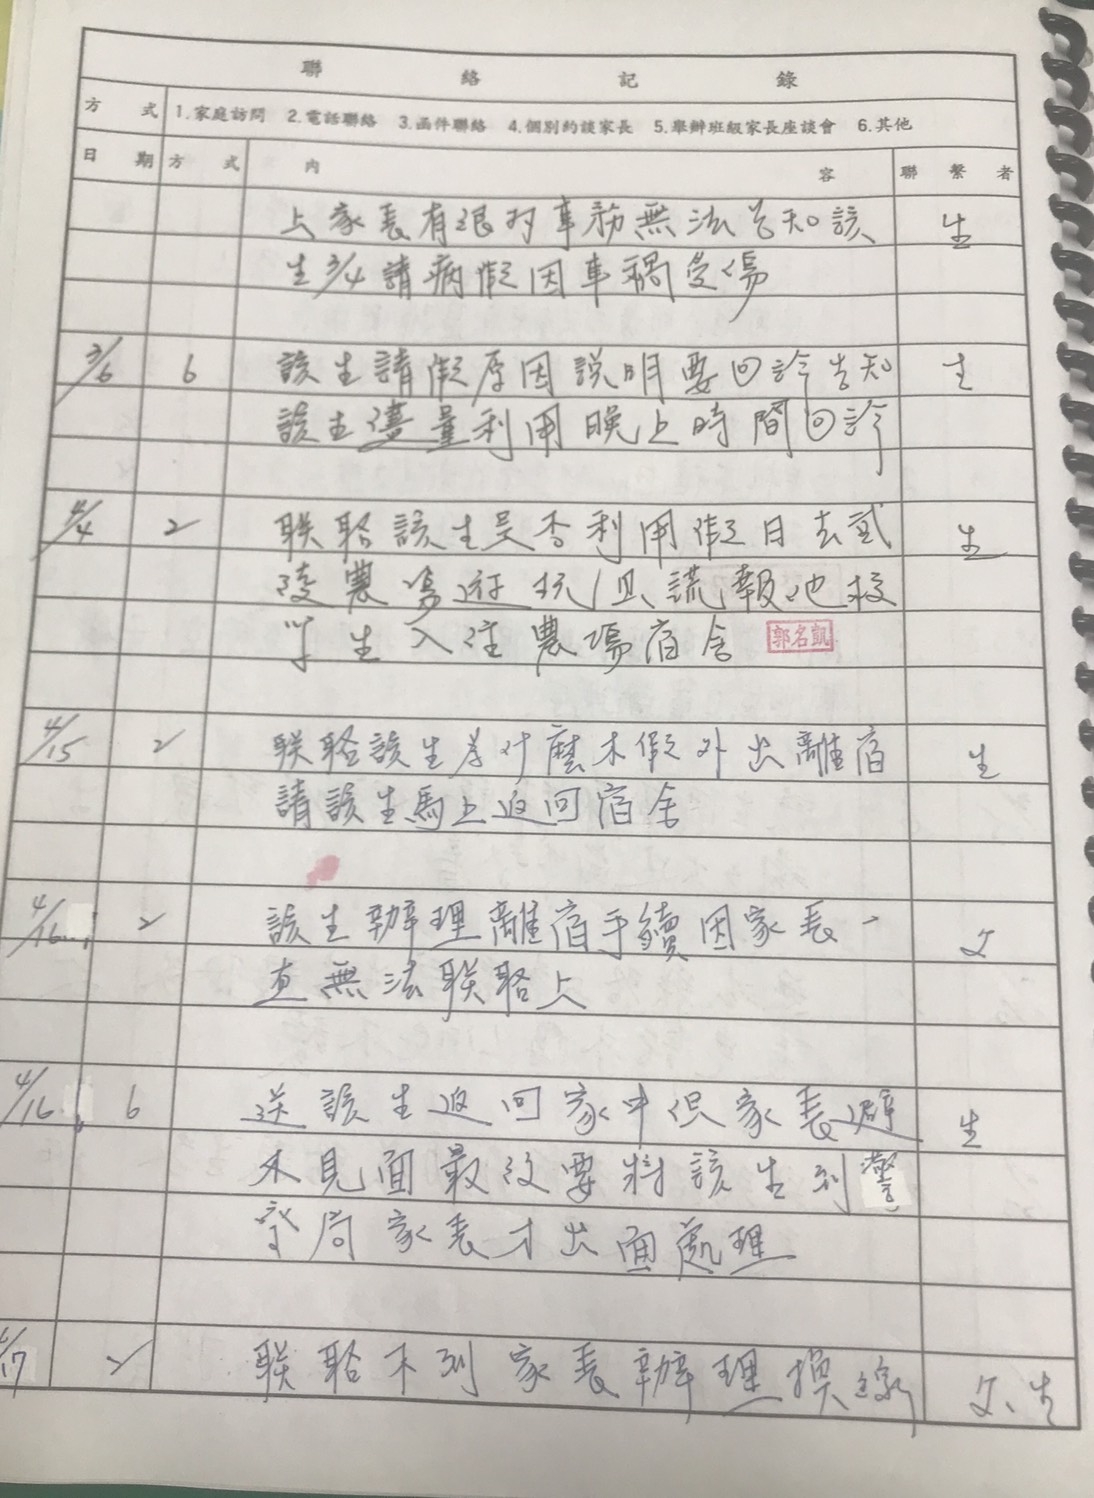 聯絡記錄
方式 1.家庭訪問 2.電話聯絡 3.函件聯絡 4.個別約談家長 5.舉辦班級家長座談會 6.其他
日期 方式 內容 聯繫者
上家長有很的事務無法告知該 生
生3/4請病假因車禍受傷
3/6 6 該生請假原因說明要回診告知 生
該生儘量利用晚上時間回診
4/4 2 联络該生是否利用假日去武 生
陵農場遊玩且謊報他校
学生入住農場宿舍 郭名凱
4/15 2 联络該生为什麼不假外出離宿 生
請該生馬上返回宿舍
4/16 2 該生辦理離宿手續因家長一 父
直無法联络上
4/16 6 送該生返回家中但家長避 生
不見面最後要將該生到警
察局家長才出面處理
4/17 2 联络不到家長辦理 父、生